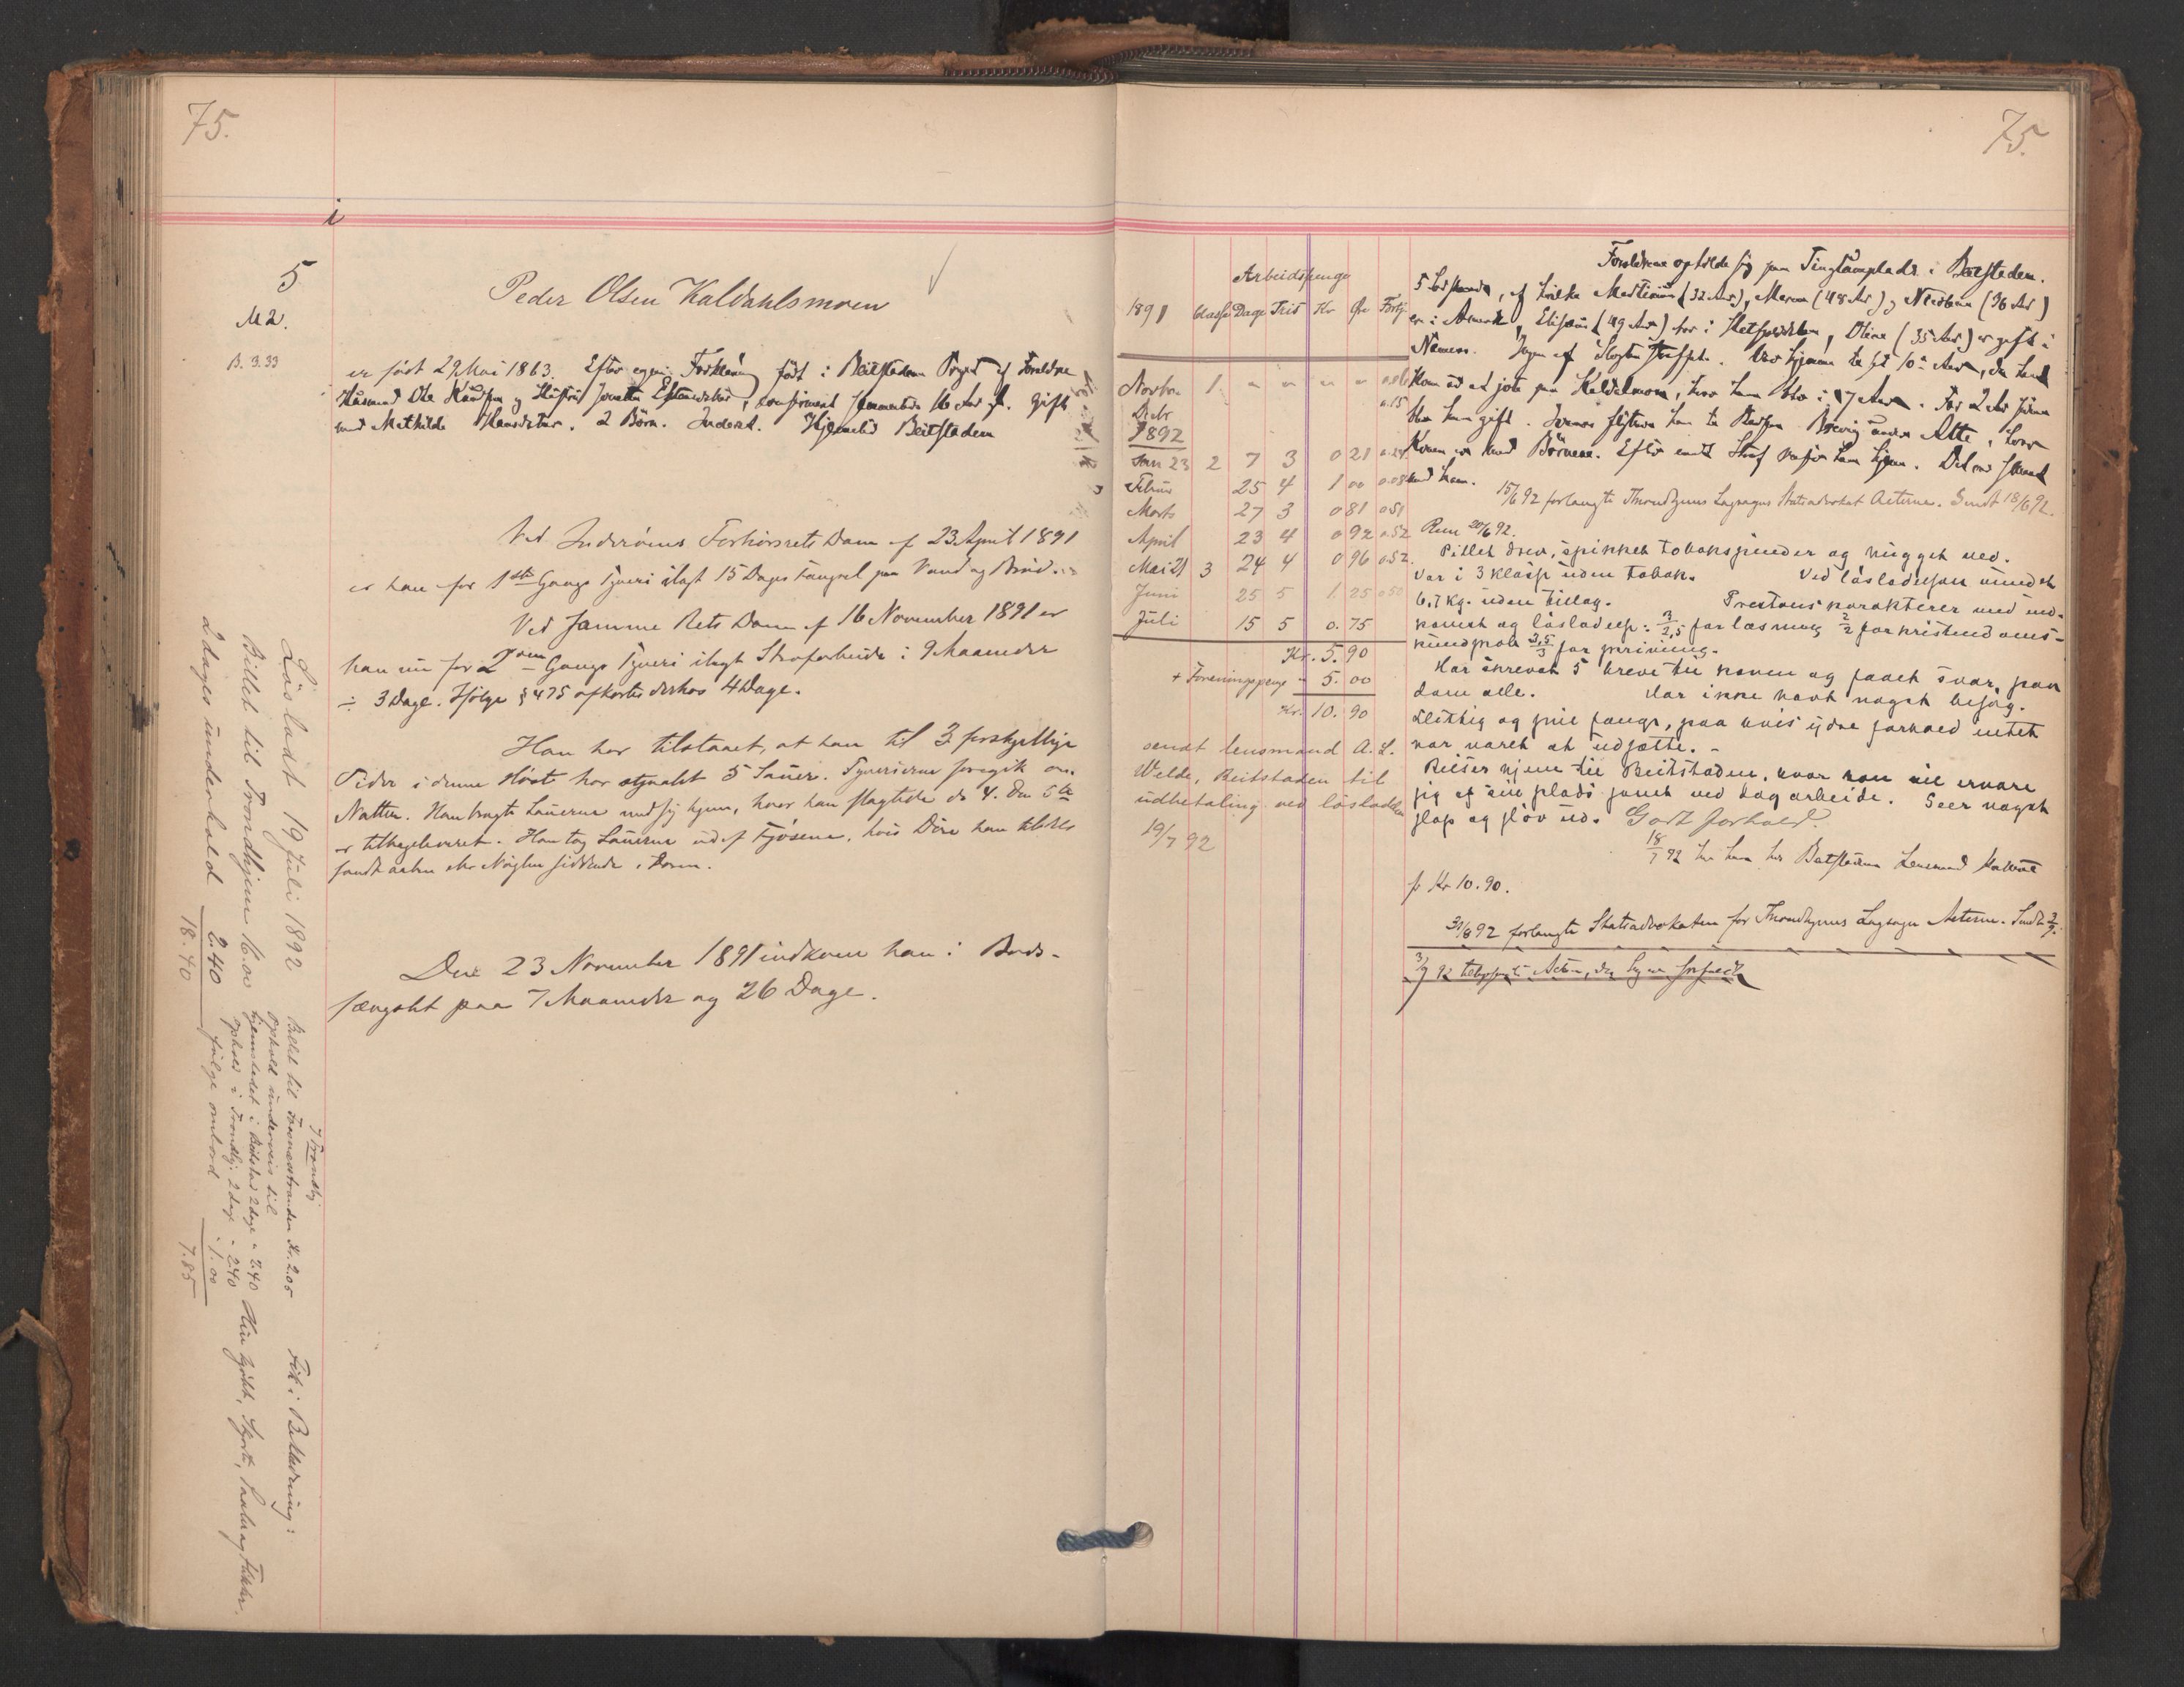 75.
i
5
M 2.
B. 3.33
Peder Olsen Kaldahlsmoen
er født 29 Mai 1863. Efter egen Forklaring født i Beitstadens Prgd af Forældre
Husmand Ole Hansen og Hustru, confirmeret sammesteds 16 Aar gl. Gift
med Mathilde Hansdatter. 2 Børn. Inderst. Hjemsted Beitstaden
Ved Inderøens Forhørsrets Dom af 23 April 1891
er han for 1ste Gangs Tyveri ilagt 15 Dages Fængsel paa Vand og Brød.
Ved samme Rets Dom af 16 November 1891 er
han nu for 2den Gangs Tyveri ilagt Strafarbeide i 9 Maaneder
÷ 3 Dage. Ifølge § 475 afkortes derhos 4 Dage.
Han har tilstaaet, at han til 3 forskjellige
Tider i denne Høst har stjaalet 5 Sauer. Tyverierne foregik om
Natten. Han bragte Sauerne med sig hjem, hvor han slagtede de 4. Den 5te
er tilbageleveret. Han tog Sauerne ud af Fjøsene, hvis Døre han tildels
fandt aabne eller Nøglen siddende i Døren.
Den 23 November 1891 indkom han i Bods-
fængslet paa 7 Maaneder og 26 Dage.
Løsladt 19 Juli 1892
Billet til Trondhjem 16.00
2 dages underhold 2.40
18.40
I Trondhj.
Billet til Kr. 2.05
Ophold underveis til
hjemstedet i Beitstad 2 dage " 2.40
Ophold i Trondhj. 2 dage " 2.40
følge ombord " 1.00
7.85
Fik i Beklædning:
Skjorte,
75.
Arbeidspenge
1891 Classe Dage Flid Kr Øre Fortj
Novbr. 1 " " " "
Decbr 0.15
1892
Jan 23 2 7 3 0 21
Febr. 25 4 1 00 0.08
Marts 27 3 0 81 0.51
April 23 4 0 92 0.52
Mai 21 3 24 4 0 96 0.52
Juni 25 5 1. 25 0.50
Juli 15 5 0. 75
Kr. 5. 90
+ Foreningspenge " 5. 00
Kr. 10. 90
sendt lensmand A. L.
Welde, Beitstaden til
udbetaling ved løsladelsen
19/7 92
Forældrene opholde sig paa Plads i Beitstaden.
5 Sødskende, af hvilke (32 Aar), Maren (48 Aar) og (36 Aar)
er i Amerika, (49 Aar) bor i, Oline (35 Aar) er gift i
Namsos. Ingen af Slægten straffet. Var hjemme til sit 10de Aar, da han
kom ud at gjæte paa Kaldalmoen, hvor han blev i 17 Aar. For 2 Aar siden
blev han gift. flyttede han til Pladsen under Alte, hvor
Konen er med Børnene. Efter endt Straf reiser han hjem.
med ham.
15/6 92 forlangte Throndhjems Lagsogns Statsadvokat Acterne. Sendt 18/6 92.
Retur 20/6 92.
Pillet drev, spikket tobakspinder og hugget ved.
Var i 3 klasse uden tobak. Ved løsladelsen mindst
6,7 kg. uden tillæg. Prestens karakterer ved ind-
komst og løsladelse: 3/2,5 for læsning 2/2 for kristendoms-
kundskab 3,5/3 for skrivning.
Har skrevet 5 breve til konen og faaet svar paa
dem alle. Har ikke havt noget besøg.
Flittig og snil fange, paa hvis ydre forhold intet
har været at udsætte. -
Reiser hjem til Beitstaden, hvor han vil ernære
sig af sin plads samt ved dag arbeide. Seer noget
slap og sløv ud. Godt forhold.
18/7 92 Beitstadens Lensmand
fr Kr 10.90.
31/8 92 forlangte Statsadvokaten for Throndhjems Lagsogn Acterne. Sendt 2/9.
3/9 92